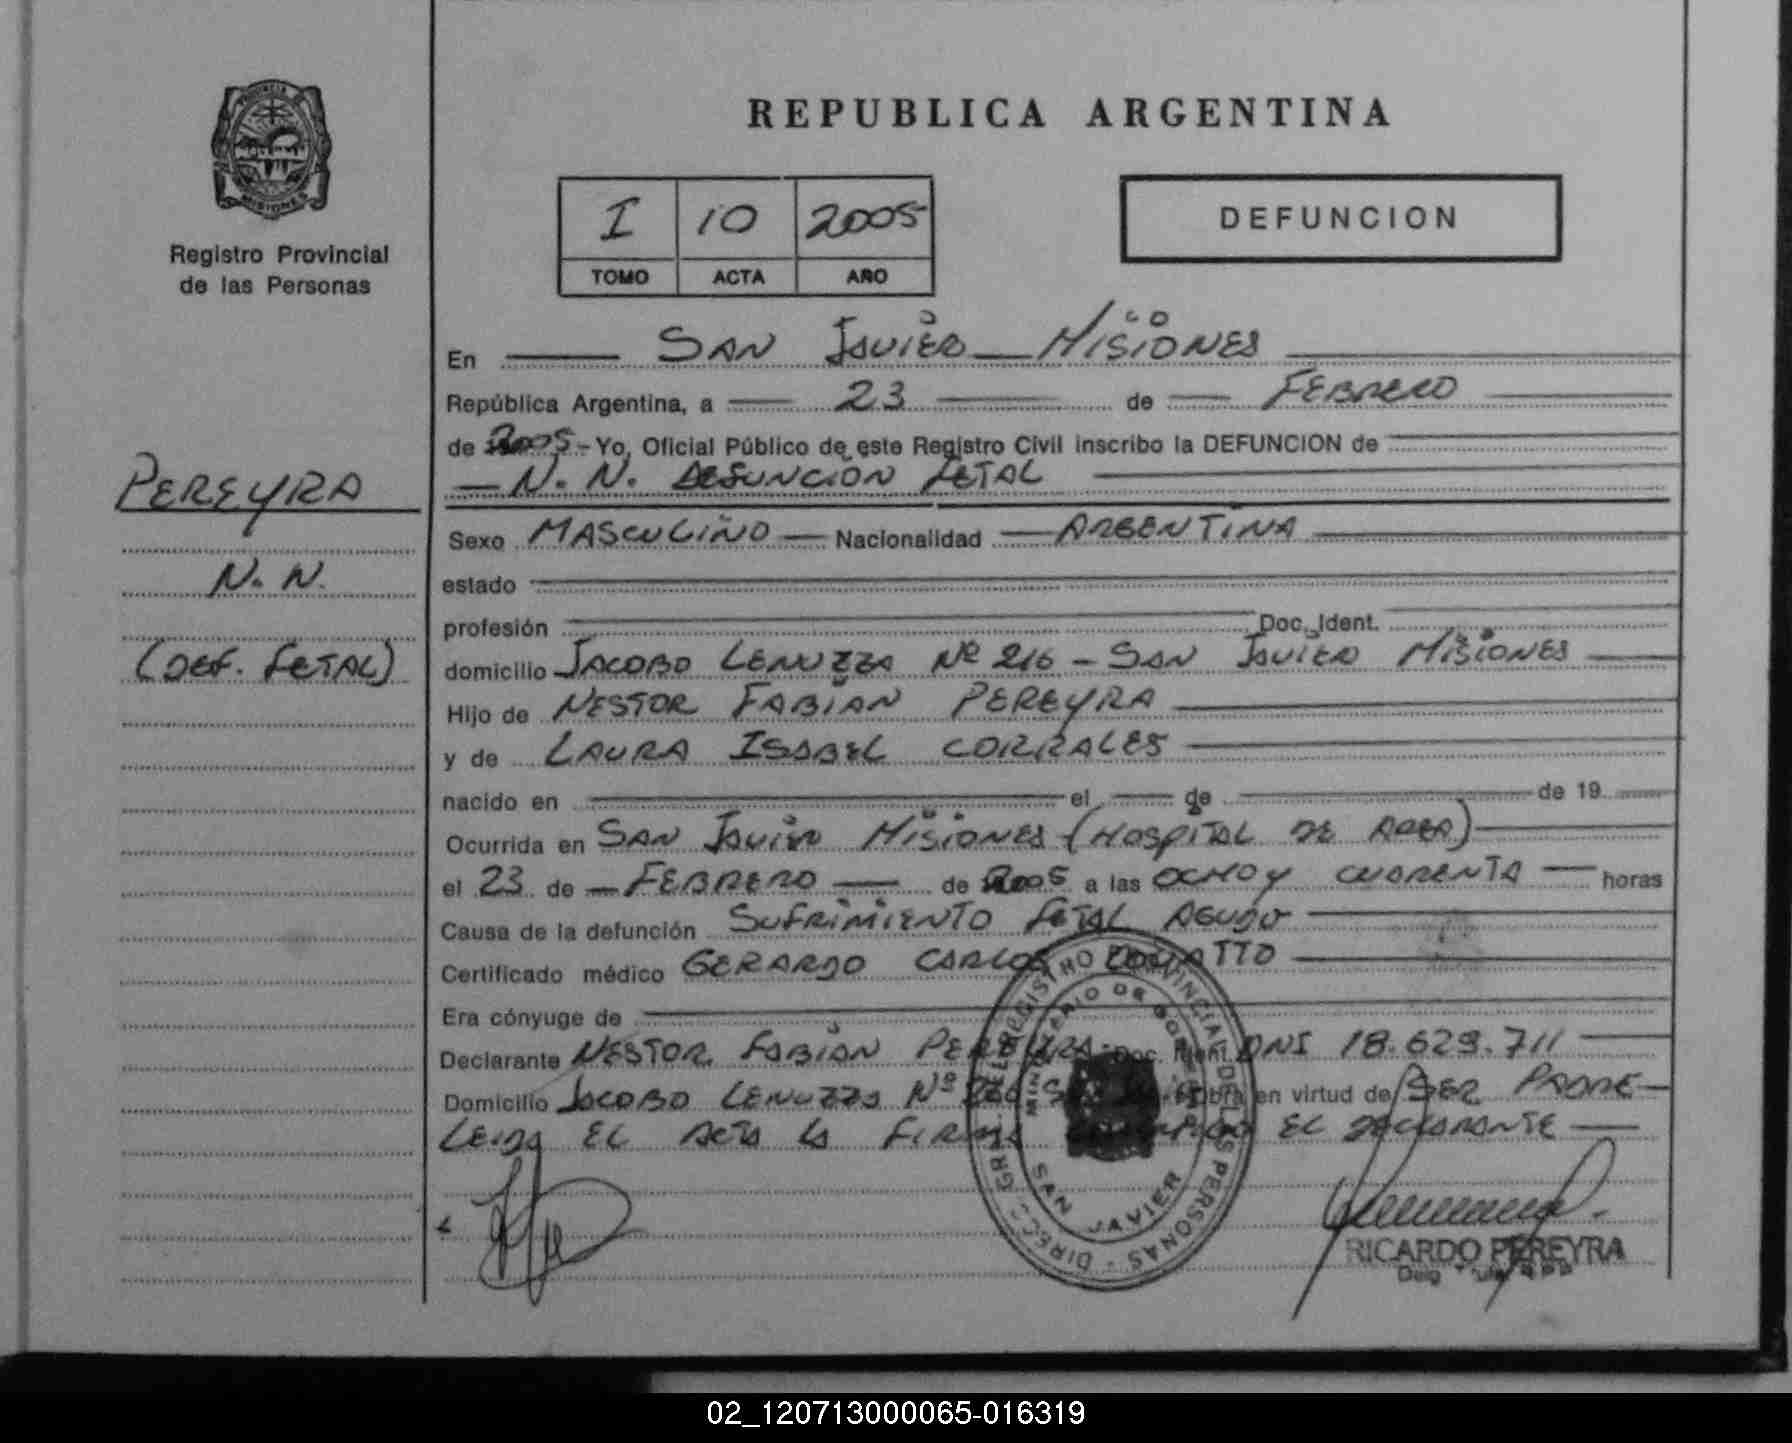 PROVINCIA DE
MISIONES
Registro Provincial
de las Personas
REPUBLICA ARGENTINA
I 10 2005
TOMO ACTA AÑO
DEFUNCION
En SAN JAVIER MISIONES
República Argentina, a 23 de FEBRERO
de 2005 - Yo, Oficial Público de este Registro Civil inscribo la DEFUNCION de
N. N. DEFUNCION FETAL
PEREYRA
N. N.
(DEF. FETAL)
Sexo MASCULINO Nacionalidad ARGENTINA
estado
profesión Doc. Ident.
domicilio JACOBO LENUZZA Nº 216 - SAN JAVIER MISIONES
Hijo de NESTOR FABIAN PEREYRA
y de LAURA ISABEL CORRALES
nacido en el de de 19
Ocurrida en SAN JAVIER MISIONES (HOSPITAL DE AREA)
el 23 de FEBRERO de 2005 a las OCHO y CUARENTA horas
Causa de la defunción SUFRIMIENTO FETAL AGUDO
Certificado médico GERARDO CARLOS
Era cónyuge de
Declarante NESTOR FABIAN PEREYRA Doc. Ident. DNI 18.629.711
Domicilio JACOBO LENUZZA Nº obra en virtud de SER PADRE
LEIDA EL ACTA LA FIRMA EL DECLARANTE
DIRECC. GRAL. DEL REGISTRO PROVINCIAL DE LAS PERSONAS
MINISTERIO DE GOB
SAN JAVIER
RICARDO PEREYRA
02_120713000065-016319